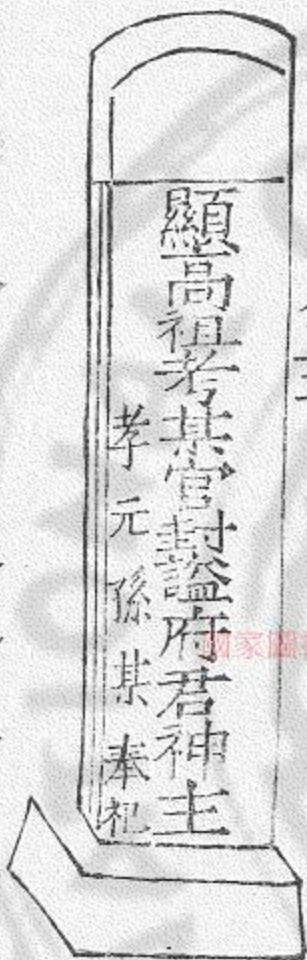 顯高祖考某官封諡府君神主
孝元孫某奉祀
國家圖